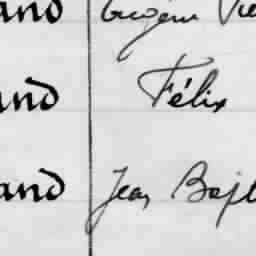 and Eugène
and Félix
and Jean Bapt